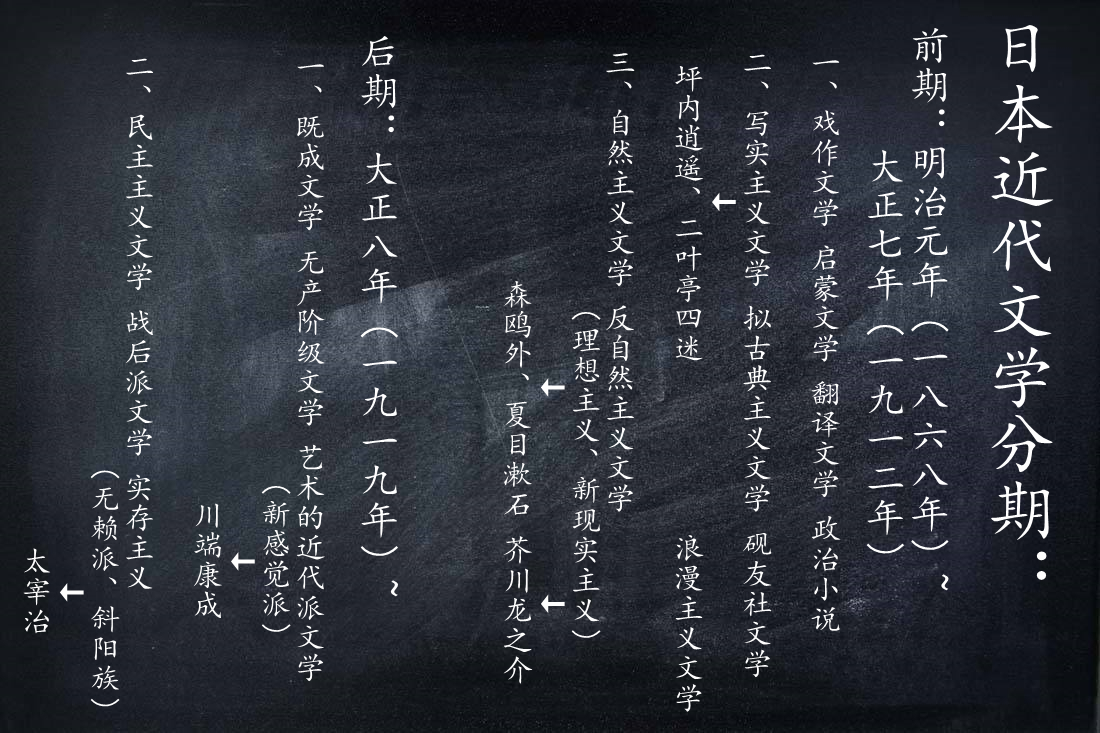 日本近代文学分期：
前期：明治元年（一八六八年）~
大正七年（一九一二年）
一、戏作文学 启蒙文学 翻译文学 政治小说
二、写实主义文学 拟古典主义文学 砚友社文学
坪内逍遥、二叶亭四迷 浪漫主义文学
三、自然主义文学 反自然主义文学
（理想主义、新现实主义）
森鸥外、夏目漱石 芥川龙之介
后期：大正八年（一九一九年）~
一、既成文学 无产阶级文学 艺术的近代派文学
（新感觉派）
川端康成
二、民主主义文学 战后派文学 实存主义
（无赖派、斜阳族）
太宰治